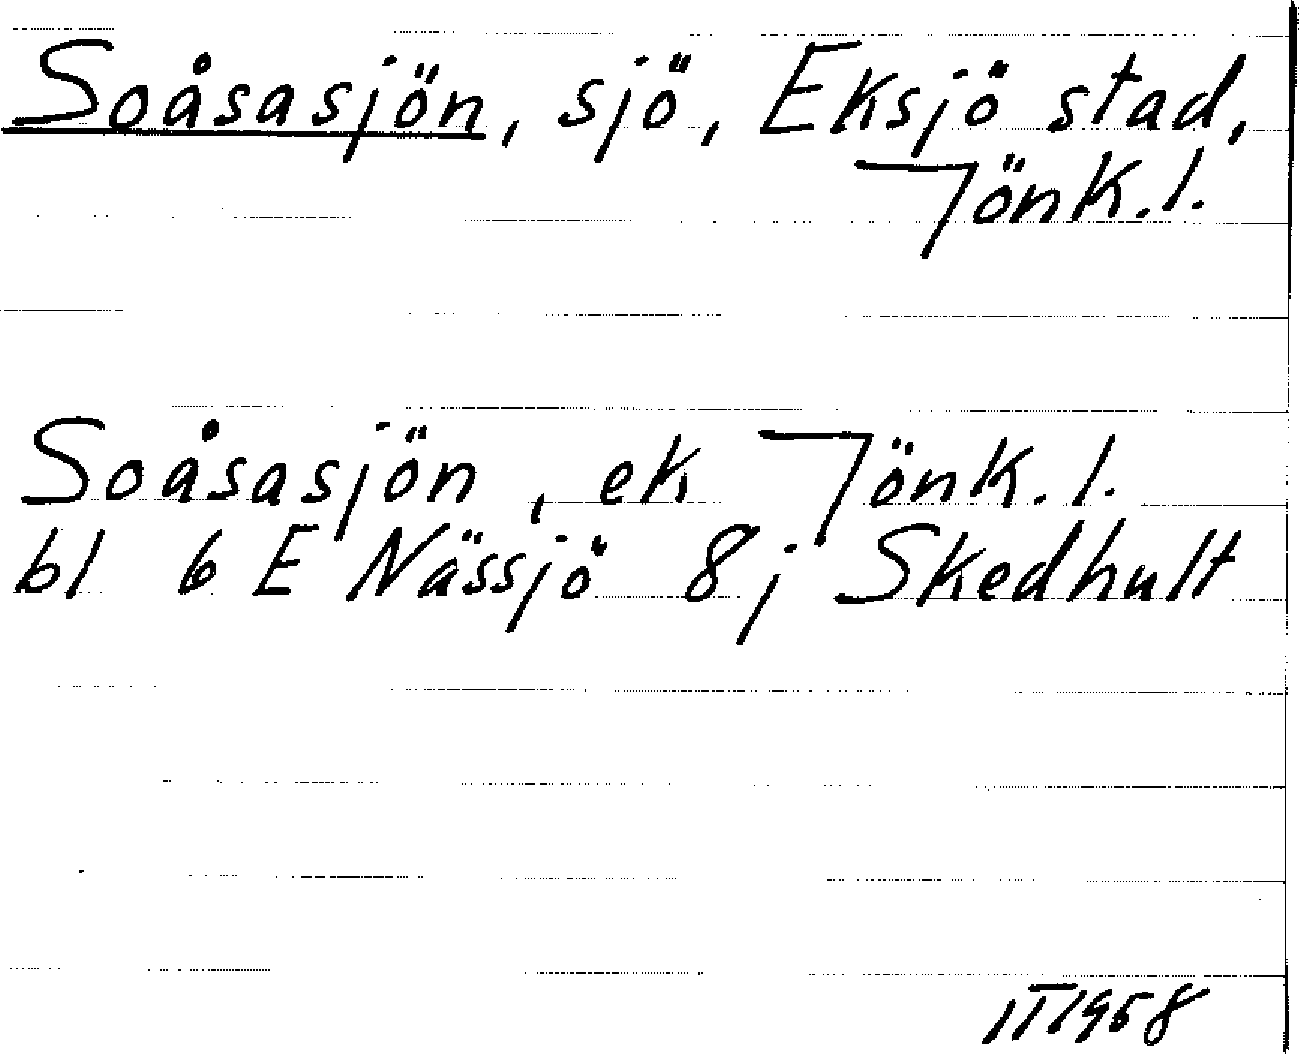 Soåsasjön, sjö, Eksjö stad,
Jönk. l.
Soåsasjön, ek Jönk. l.
bl 6 E Nässjö 8j Skedhult